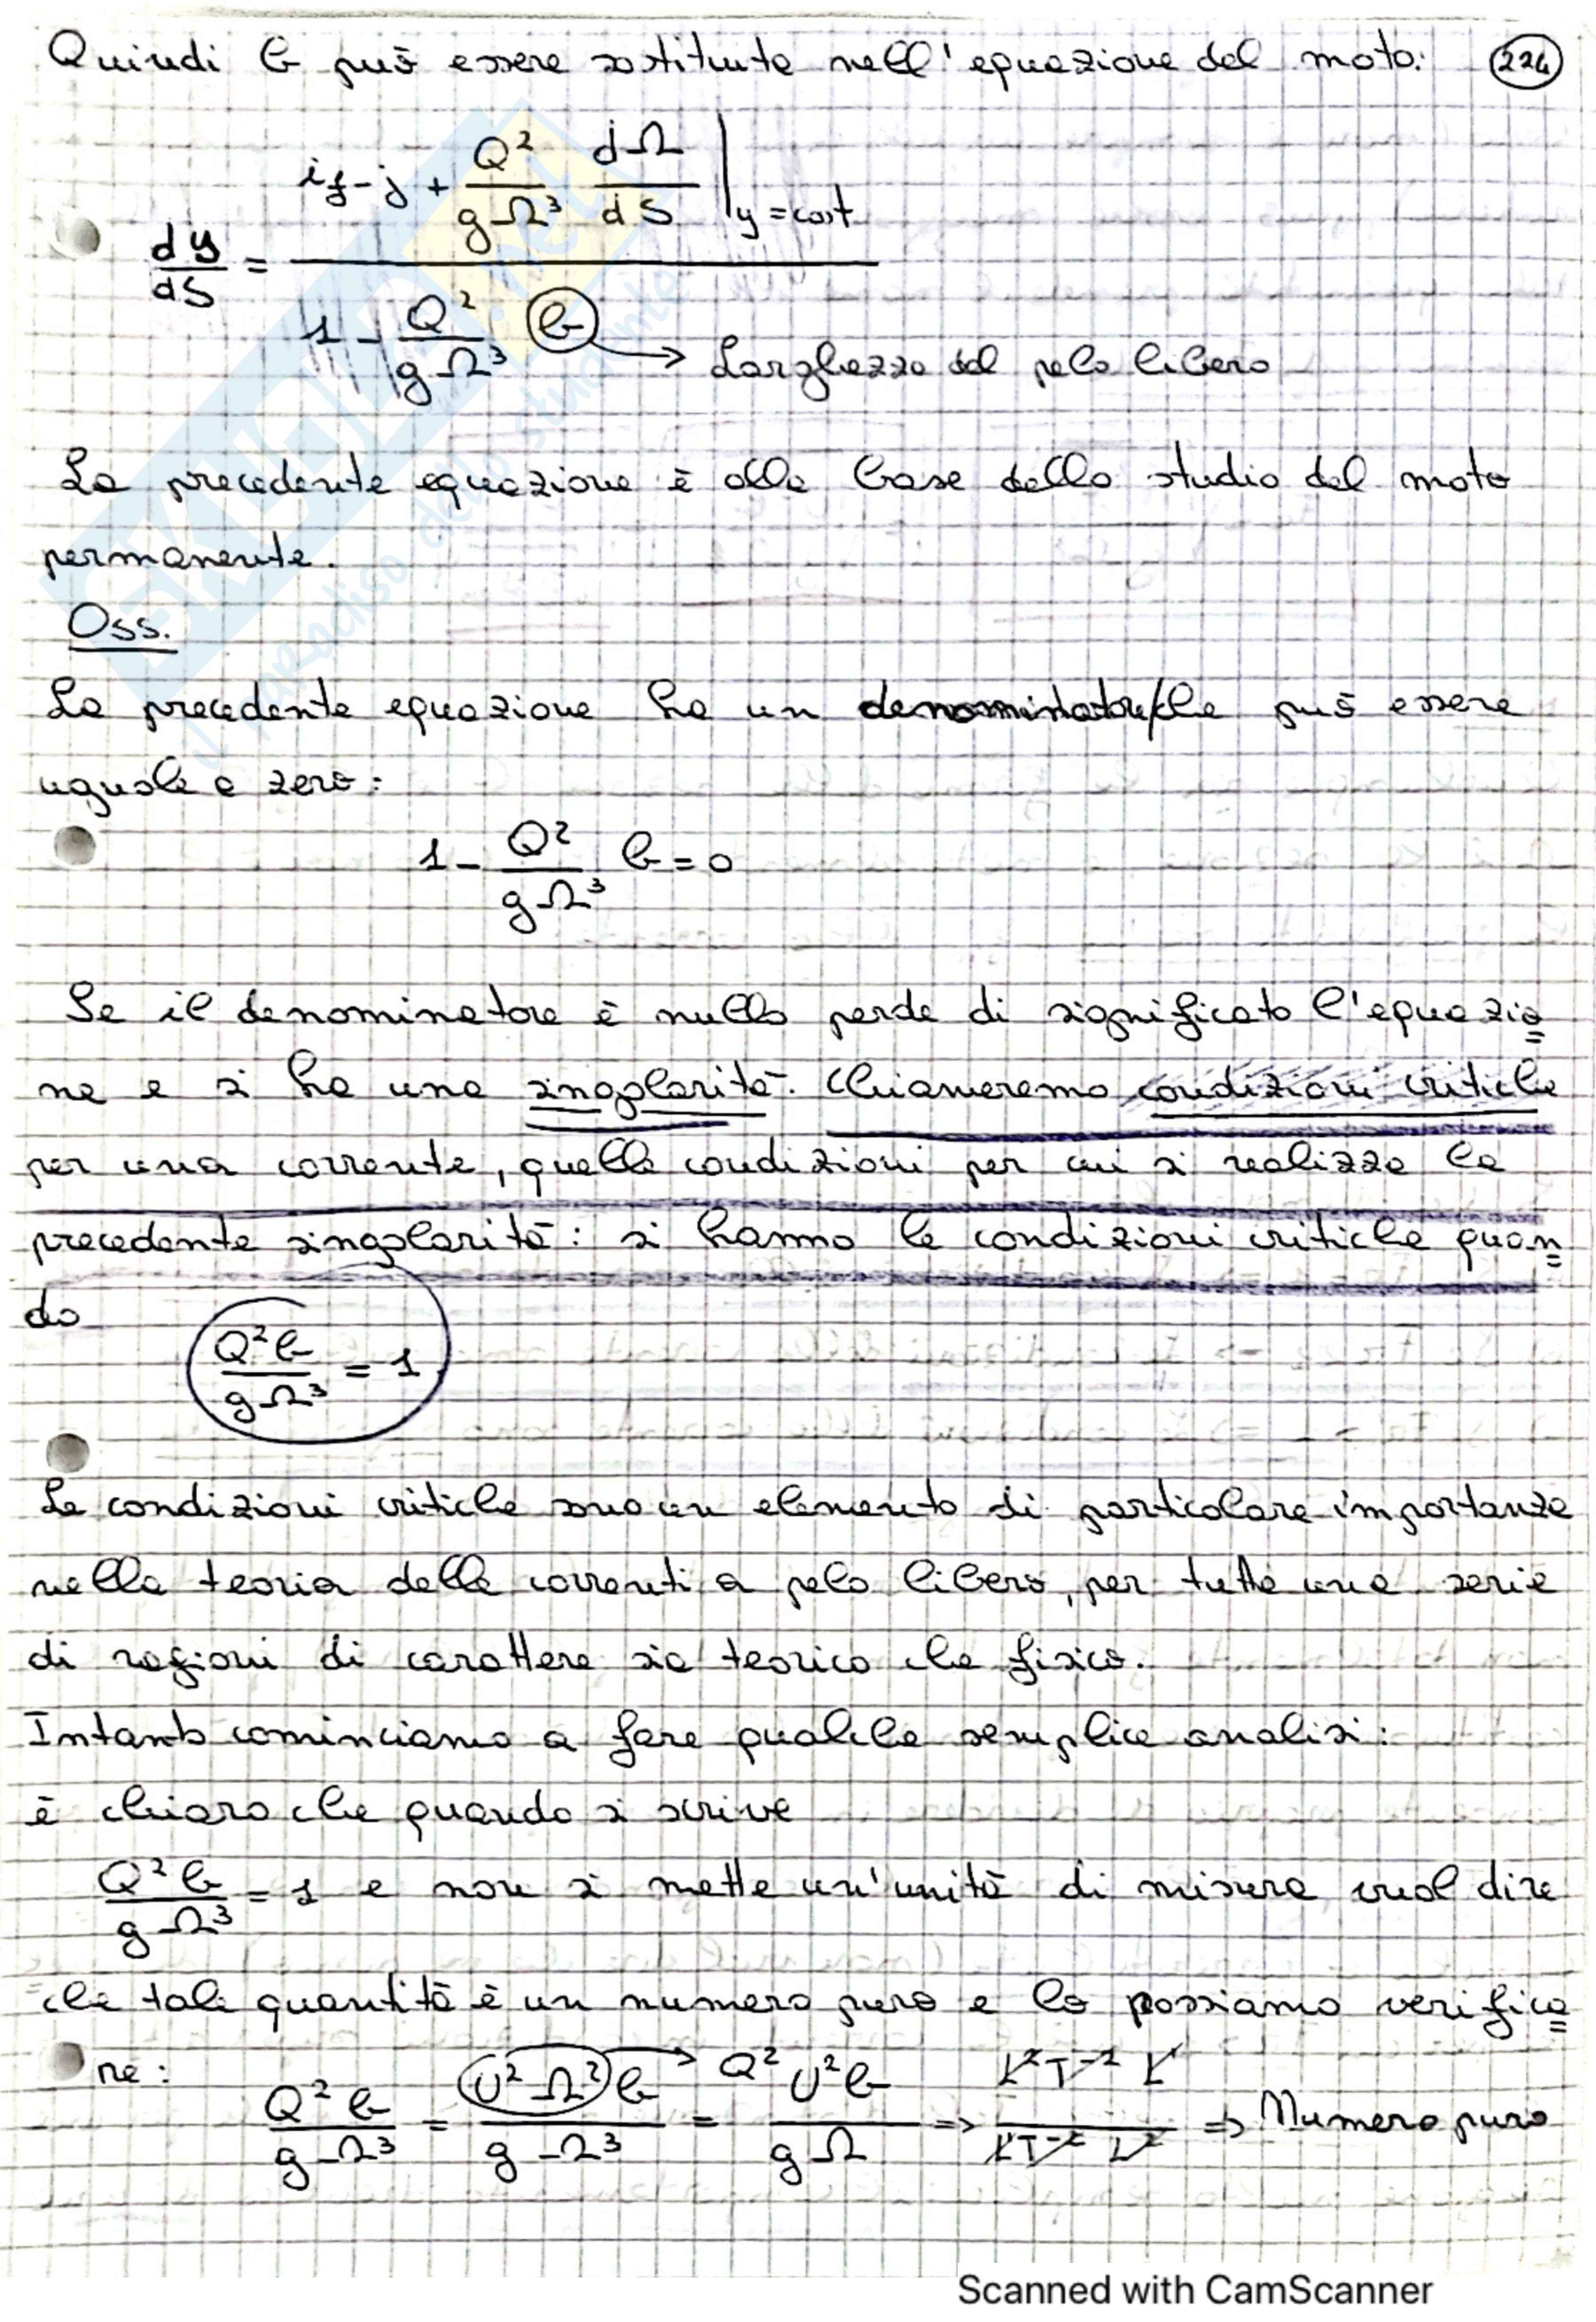 Quindi b può essere sostituita nell'equazione del moto: 224
dy/dS = (if - j + Q²/(gΩ³) dΩ/dS |y=cost) / (1 - Q²/(gΩ³) b) → Larghezza del pelo libero
La precedente equazione è alla base dello studio del moto
permanente.
Oss.
La precedente equazione ha un denominatore che può essere
uguale a zero:
1 - Q²/(gΩ³) b = 0
Se il denominatore è nullo perde di significato l'equazio=
ne e si ha una singolarità. Chiameremo condizioni critiche
per una corrente, quelle condizioni per cui si realizza la
precedente singolarità: si hanno le condizioni critiche quan=
do
Q²b/(gΩ³) = 1
Le condizioni critiche sono un elemento di particolare importanza
nella teoria delle correnti a pelo libero, per tutta una serie
di ragioni di carattere sia teorico che fisico.
Intanto cominciamo a fare qualche semplice analisi:
è chiaro che quando si scrive
Q²b/(gΩ³) = 1 e non si mette un'unità di misura vuol dire
che tale quantità è un numero puro e lo possiamo verifica=
re:
Q²b/(gΩ³) = U²Ω²b/(gΩ³) → Q² = U²b/(gΩ) => L²T⁻² L/(LT⁻² L²) => Numero puro
SKUOLA.net
il paradiso dello studente
Scanned with CamScanner